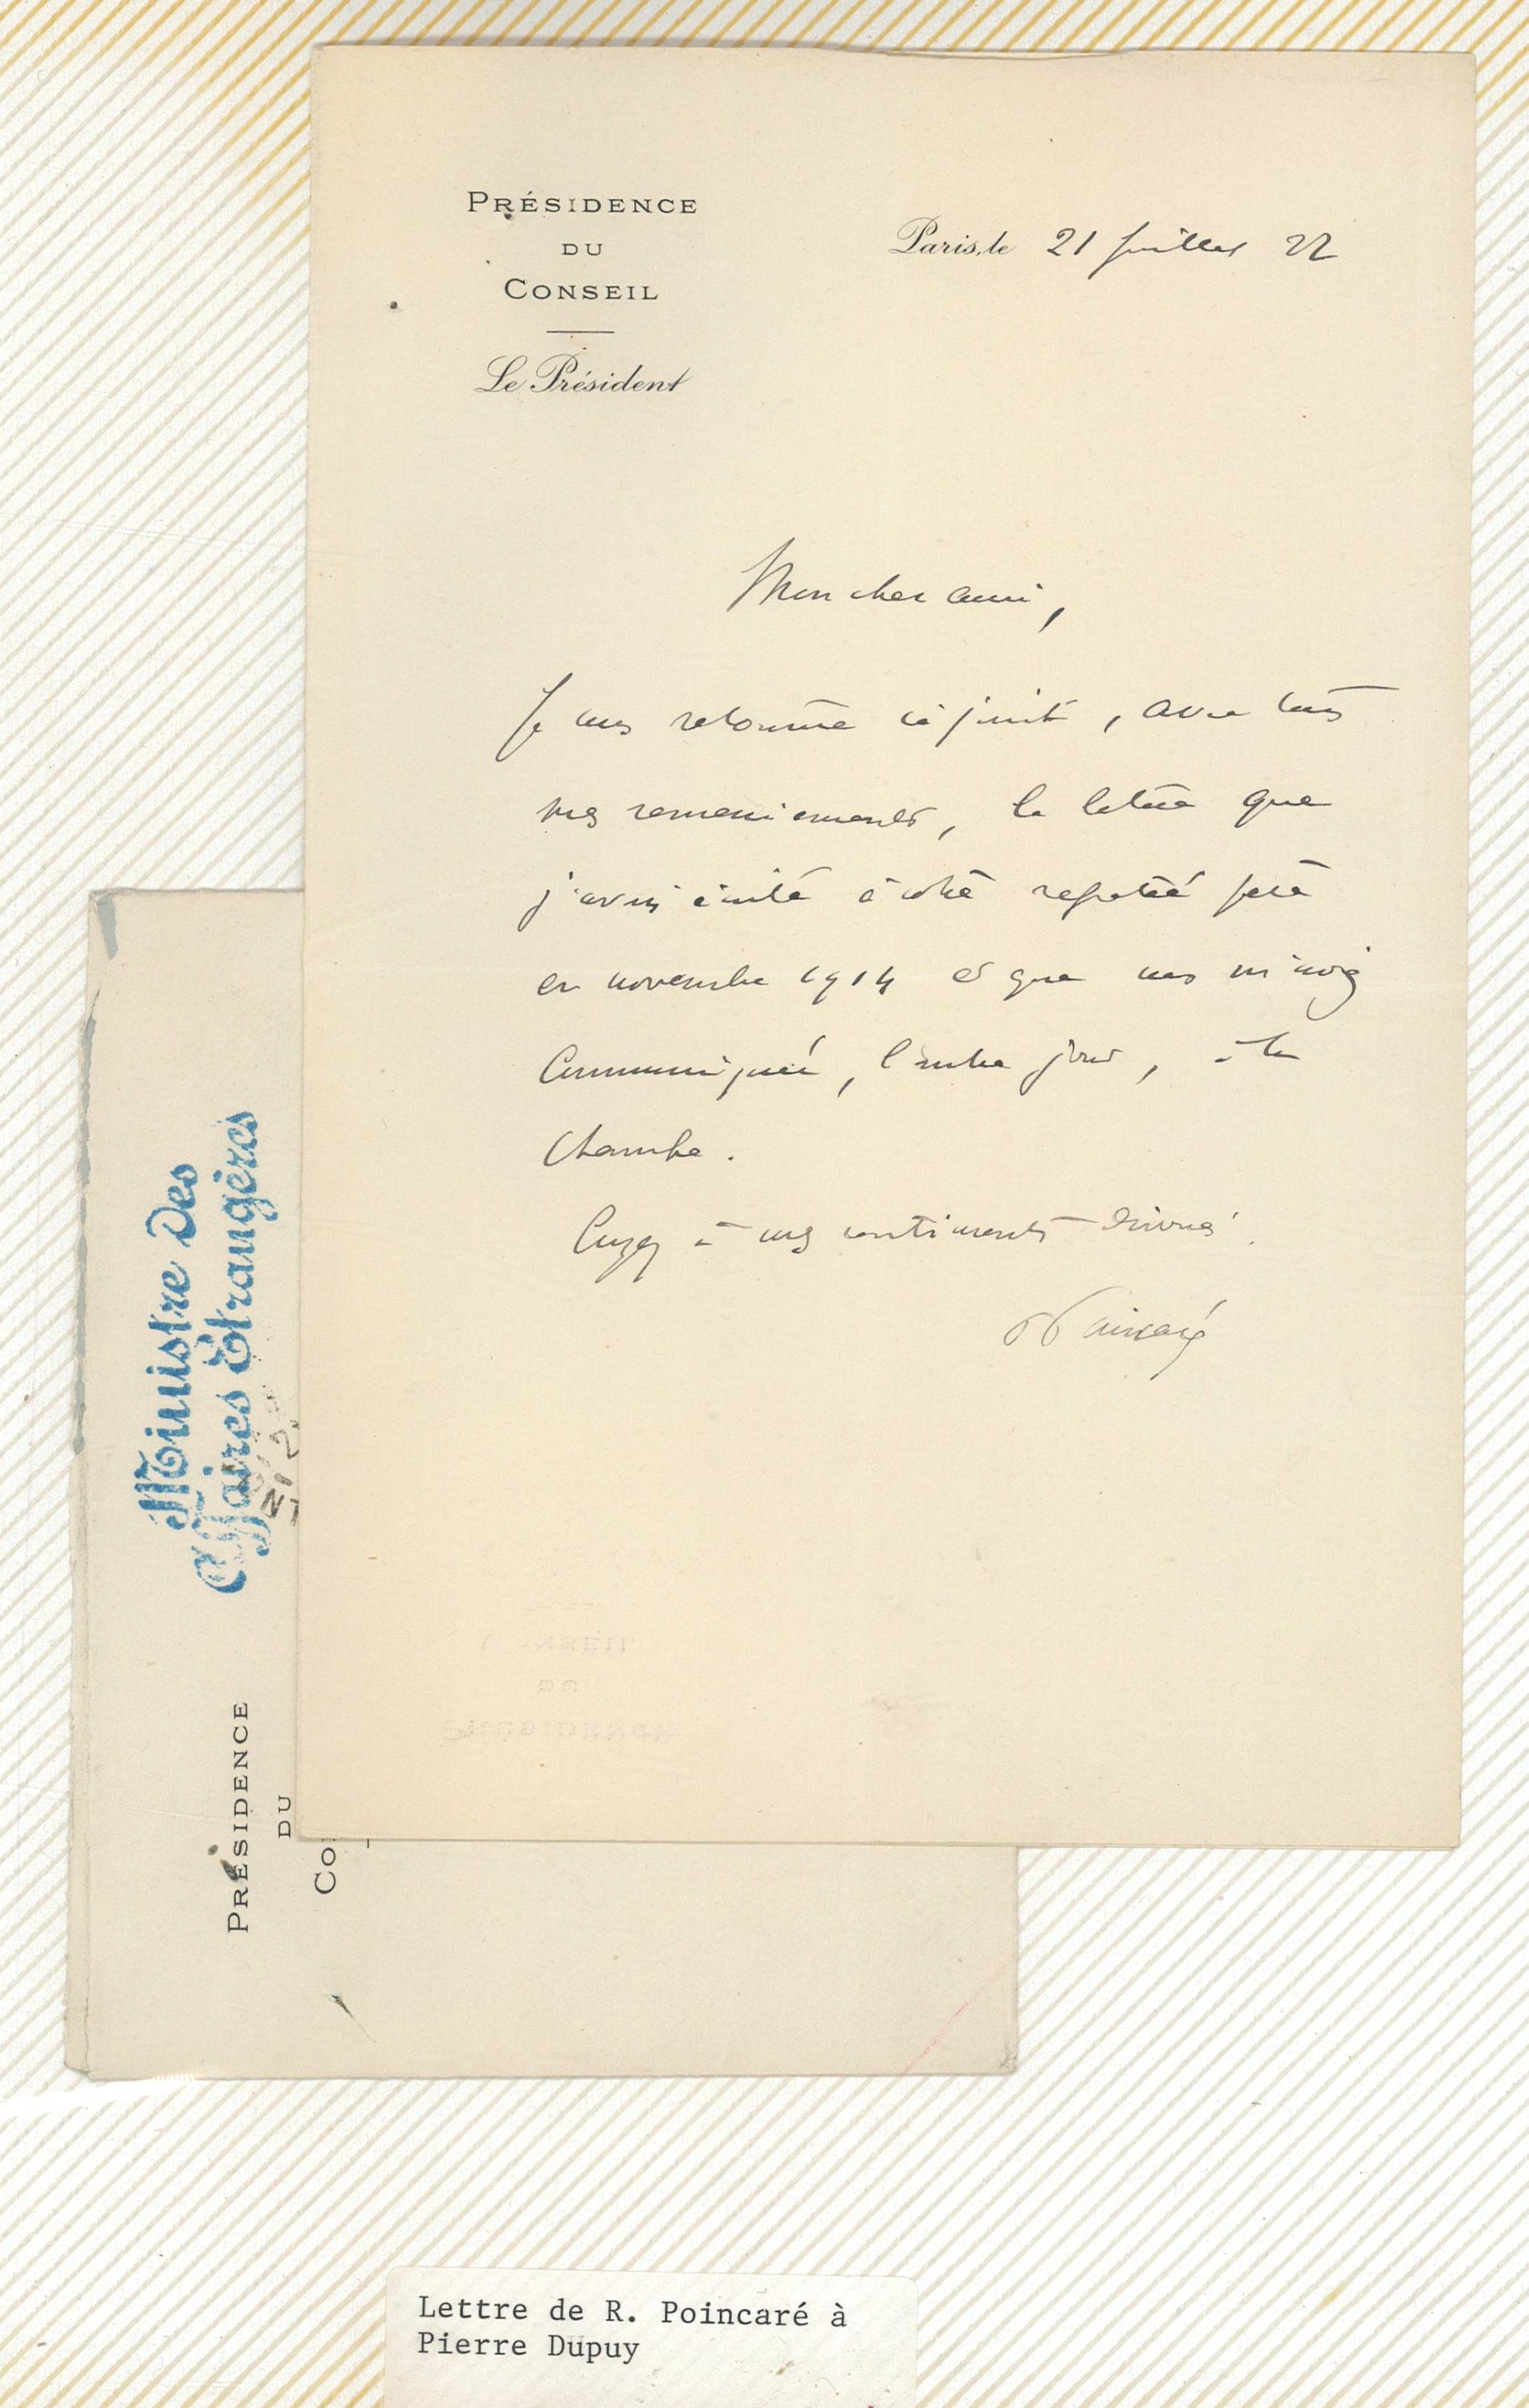 PRÉSIDENCE
DU
CONSEIL
Le Président
Paris, le 21 juillet 22
Mon cher ami,
Je vous retourne ci-joint, avec tous
mes remerciements, la lettre que
j'avais écrite à votre regretté père
en novembre 1914 et que vous m'aviez
communiquée, l'autre jour, à la
Chambre.
Croyez à mes sentiments dévoués.
Poincaré
Ministre Des
Affaires Etrangères
PRÉSIDENCE
DU
CO
Lettre de R. Poincaré à
Pierre Dupuy